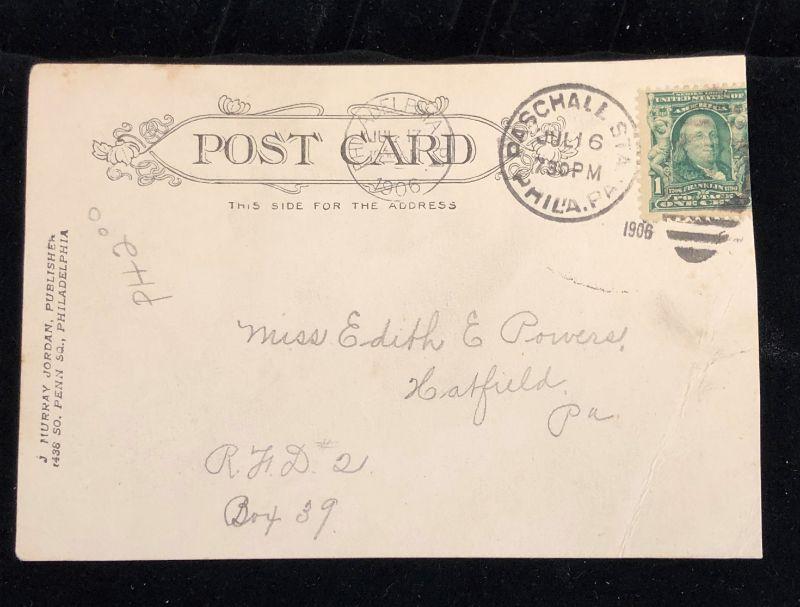 POST CARD
THIS SIDE FOR THE ADDRESS
JUL 17
1906
PASCHALL STA.
JUL 16
7 30 PM
PHILA. PA.
1906
UNITED STATES OF
AMERICA
1
FRANKLIN
POSTAGE
ONE CENT
J MURRAY JORDAN, PUBLISHER
1438 SO. PENN SQ., PHILADELPHIA
PH2 00
Miss Edith E Powers,
Hatfield.
Pa.
R.F.D. #2.
Box 39.